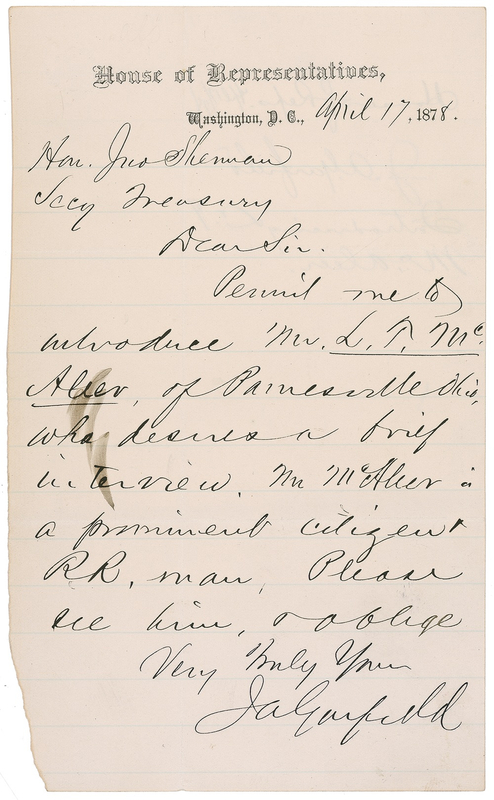 House of Representatives,
Washington, D. C., April 17, 1878.
Hon. Jno Sherman
Secy Treasury
Dear Sir.
Permit me to
introduce Mr. L. T. Mc
Aleer, of Painesville Ohio,
who desires a brief
interview. Mr McAleer is
a prominent citizen &
RR. man, Please
see him, & oblige
Very Truly Yours
J A Garfield